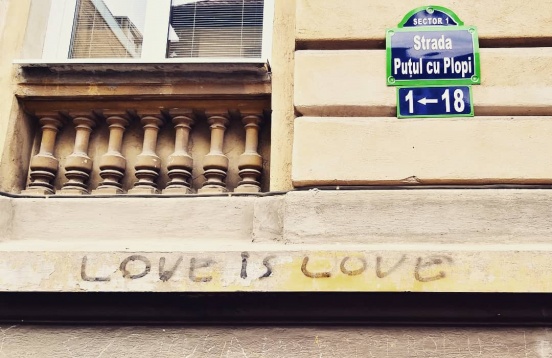 SECTOR 1
Strada
Puțul cu Plopi
1←18
LOVE IS LOVE